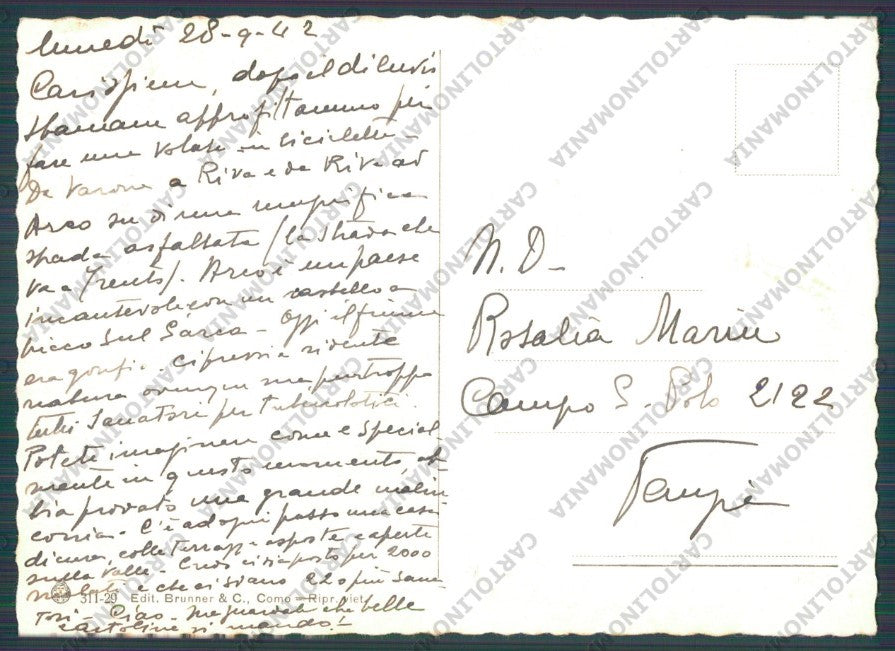 lunedì 28-9-42
Carissiem, dopo el diluvio
stamane approfittammo per
fare una volata in bicicletta -
Da Varone a Riva e da Riva ad
Arco su di una magnifica
strada asfaltata (la strada che
va a Trento). Arco è un paese
incantevole con un castello a
picco sul Sarca - Oggi il fiume
era gonfio - cipressi e ridente
natura ovunque ma purtroppo
tutti Sanatori per tubercolotici.
Potete immaginare come e special
mente in questo momento, ab
bia provato una grande malin
conia - C'è ad ogni passo una casa
di cura, colle terrazze esposte e aperte
sulla valle - Credo ci sia posto per 2000
malati e che ci siano 22 o più Sana
tori - Ciao - ma guardate che belle
cartoline vi mando!
311-29 Edit. Brunner & C., Como - Ripr. viet.
N. D.
Rosalia Marin
Campo S. Polo 2122
CARTOLINOMANIA